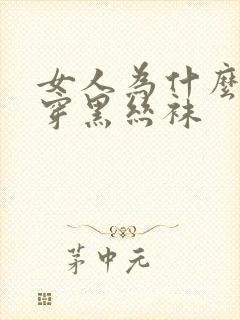 女人為什麼
穿黑絲袜
茅中元